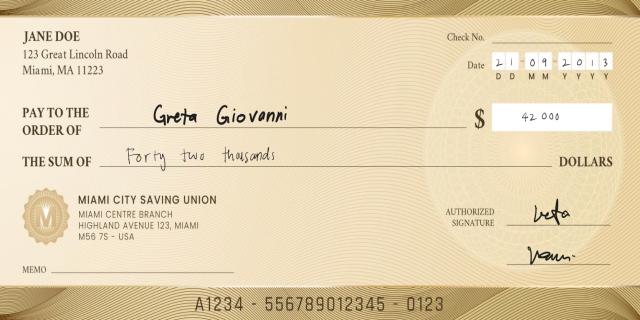 JANE DOE
123 Great Lincoln Road
Miami, MA 11223
Check No.
Date 21 09 2013
D D M M Y Y Y Y
PAY TO THE ORDER OF Greta Giovanni $ 42 000
THE SUM OF Forty two thousands DOLLARS
M
MIAMI CITY SAVING UNION
MIAMI CENTRE BRANCH
HIGHLAND AVENUE 123, MIAMI
M56 7S - USA
AUTHORIZED
SIGNATURE
MEMO
A1234 - 556789012345 - 0123